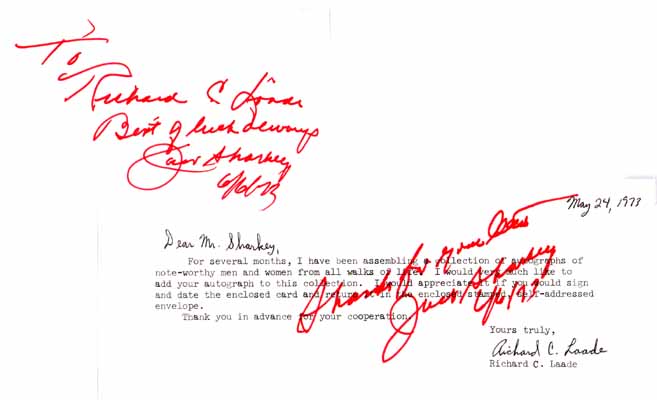 To
Richard C. Laade
Best of luck always
Jack Sharkey
6/6/73
May 24, 1973
Dear Mr. Sharkey,
For several months, I have been assembling a collection of autographs of
note-worthy men and women from all walks of life. I would very much like to
add your autograph to this collection. I would appreciate it if you would sign
and date the enclosed card and return it in the enclosed stamped, self-addressed
envelope.
Thank you in advance for your cooperation.
Thanks for your
Jack Sharkey
6/6/73
Yours truly,
Richard C. Laade
Richard C. Laade